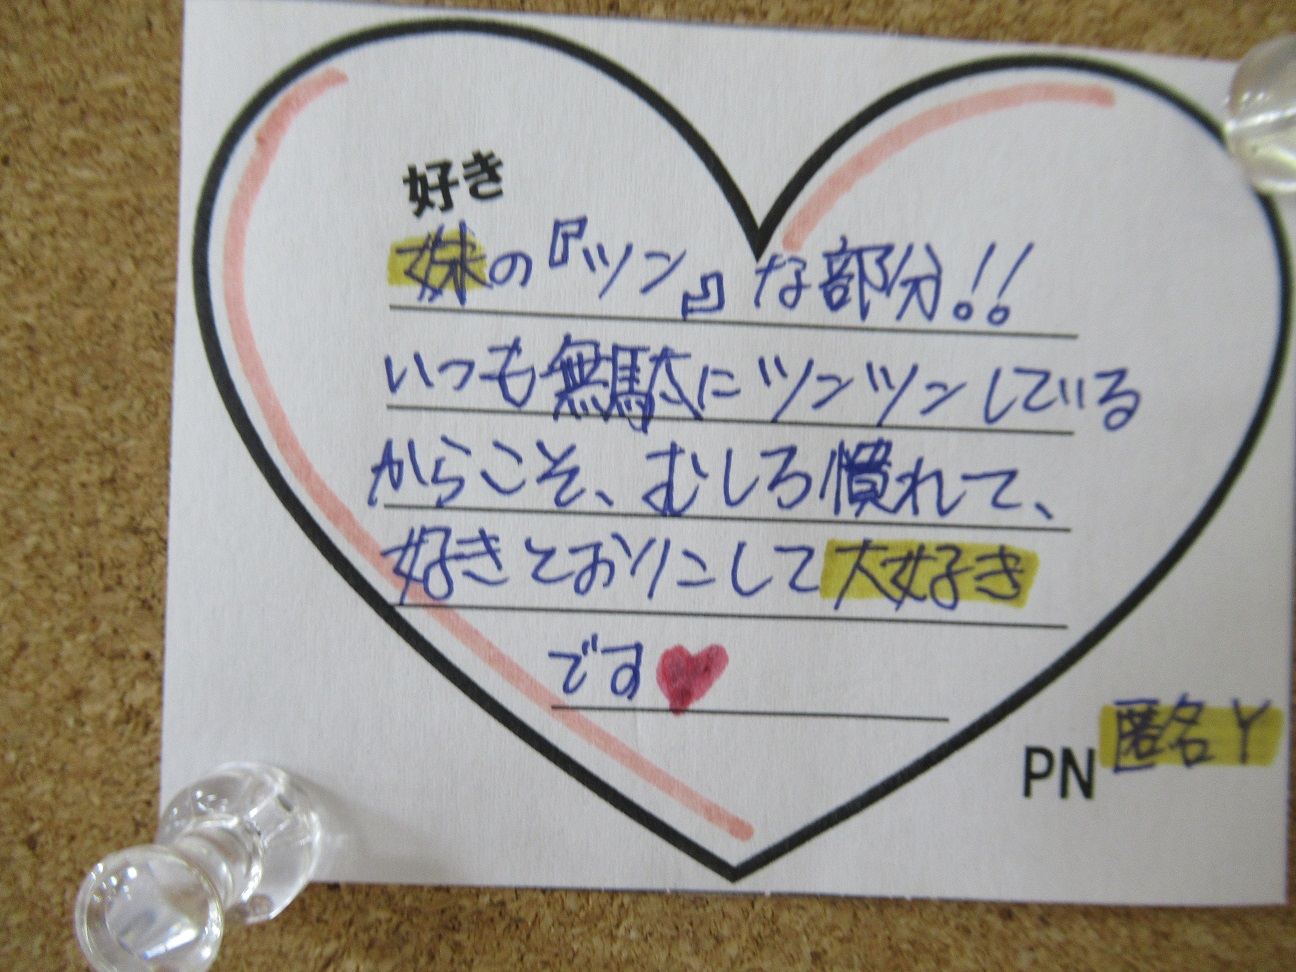 好き
妹の『ツン』な部分!!
いつも無駄にツンツンしている
からこそ、むしろ慣れて、
好きとおりこして大好き
です♥
PN 匿名Y